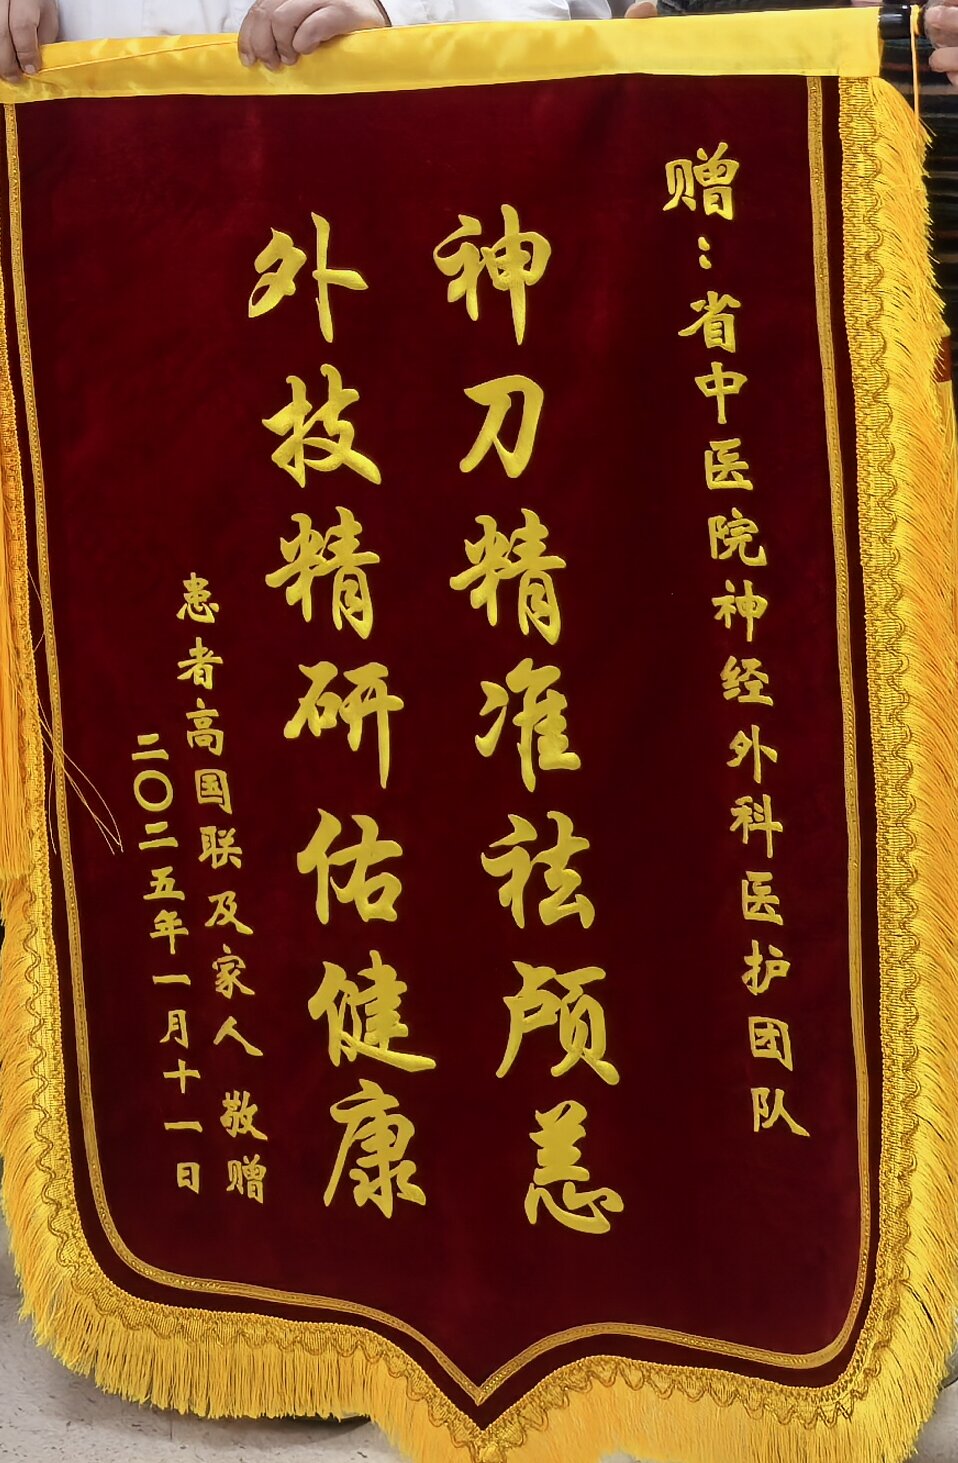 赠：省中医院神经外科医护团队
神刀精准祛颅恙
外技精研佑健康
患者高国联及家人 敬赠
二〇二五年一月十一日